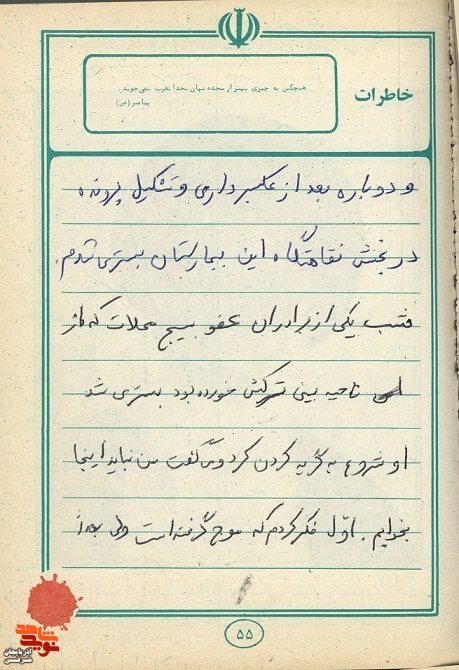 خاطرات
هیچکس به چیزی بهتر از سجده نهان بخدا تقرب نمی‌جوید.
پیامبر (ص)
و دوباره بعد از عکسبرداری و تشکیل پرونده
در بخش نقاهتگاه این بیمارستان بستری شدم.
شب یکی از برادران عضو بسیج محلات که از
ناحیه بینی ترکش خورده بود بستری شد
او شروع به گریه کردن کرد و می‌گفت من نباید اینجا
بخوابم. اوّل فکر کردم که موج گرفته است ولی بعداً
۵۵
نوید شاهد
آذربایجان شرقی